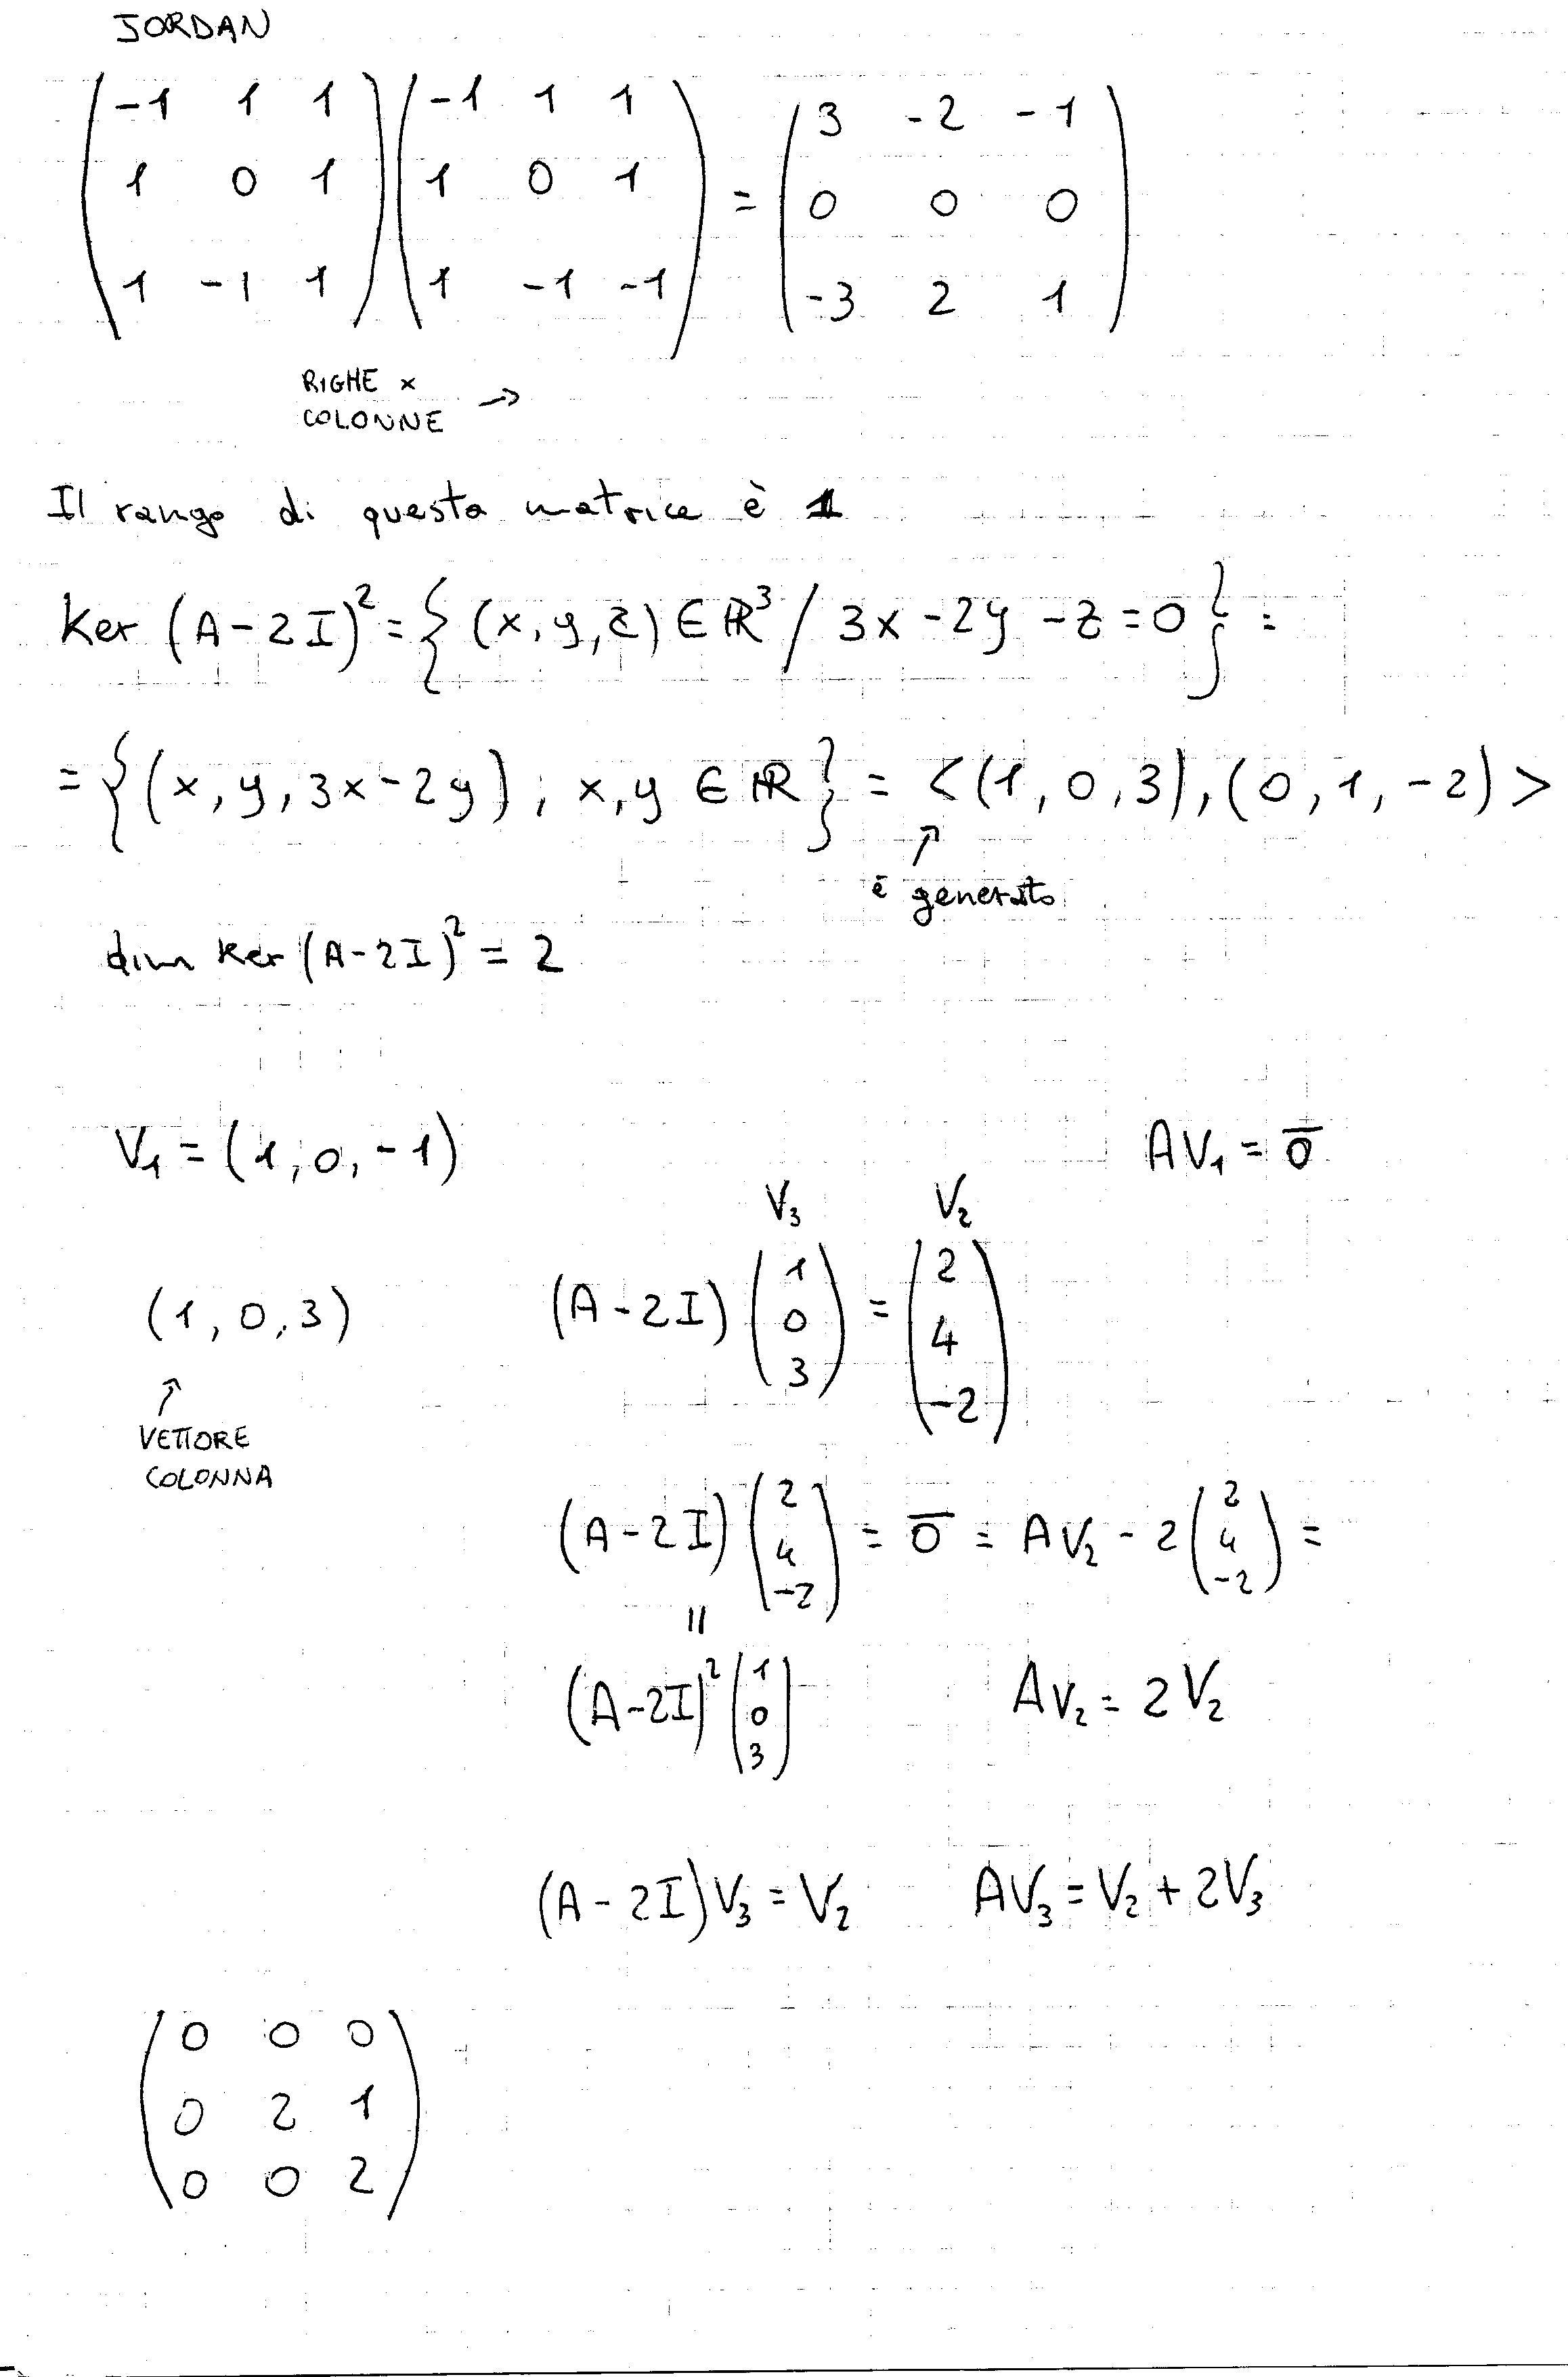 JORDAN
(-1 1 1) (-1 1 1) (3 -2 -1)
(1 0 1) (1 0 1) = (0 0 0)
(1 -1 1) (1 -1 -1) (-3 2 1)
RIGHE x
COLONNE →
Il rango di questa matrice è 1
Ker (A-2I)² = { (x, y, z) ∈ ℝ³ / 3x - 2y - z = 0 } =
= { (x, y, 3x-2y) ; x, y ∈ ℝ } = < (1, 0, 3), (0, 1, -2) >
↑
è generato
dim Ker (A-2I)² = 2
V₁ = (1, 0, -1) AV₁ = 0̅
V₃ V₂
(1, 0, 3) (A-2I) (1 0 3) = (2 4 -2)
↑
VETTORE
COLONNA
(A-2I) (2 4 -2) = 0̅ = AV₂ - 2 (2 4 -2) =
||
(A-2I)² (1 0 3) AV₂ = 2V₂
(A-2I)V₃ = V₂ AV₃ = V₂ + 2V₃
(0 0 0)
(0 2 1)
(0 0 2)